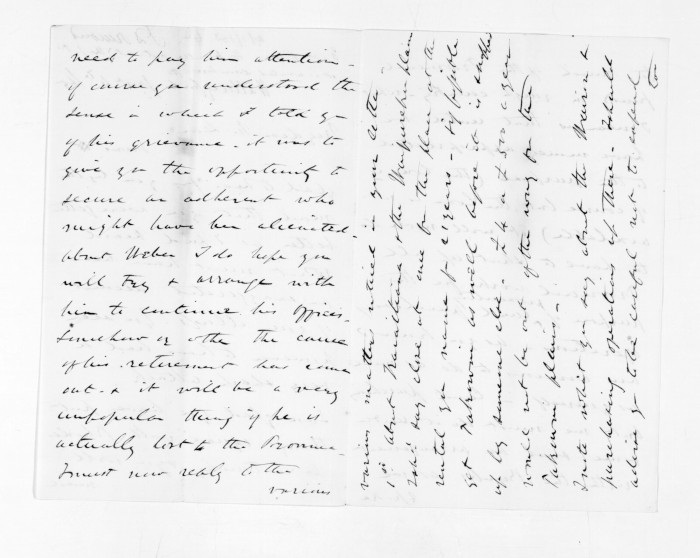 need to pay him attention -
Of course you understood the
sense in which I told you
of his grievance - it was to
give you the opportunity to
secure an adherent who
might have been alienated -
about Weber I do hope you
will try & arrange with
him to continue his offices.
Somehow or other the cause
of his retirement has come
out - & it will be a very
unpopular thing if he is
actually lost to the Province -
I must now reply to the
various
various matters noticed in your letter -
1st about & the plain
I shd say close at once for the plain at the
rental you name for 21 years - if possible
get Tahoraiti as well before it is
up by someone else. £4 a £500 a year
would not be out of the way for the
plains -
I note what you say about the Wairoa &
purchasing operations up there - I should
advise you to be careful not to expend
to